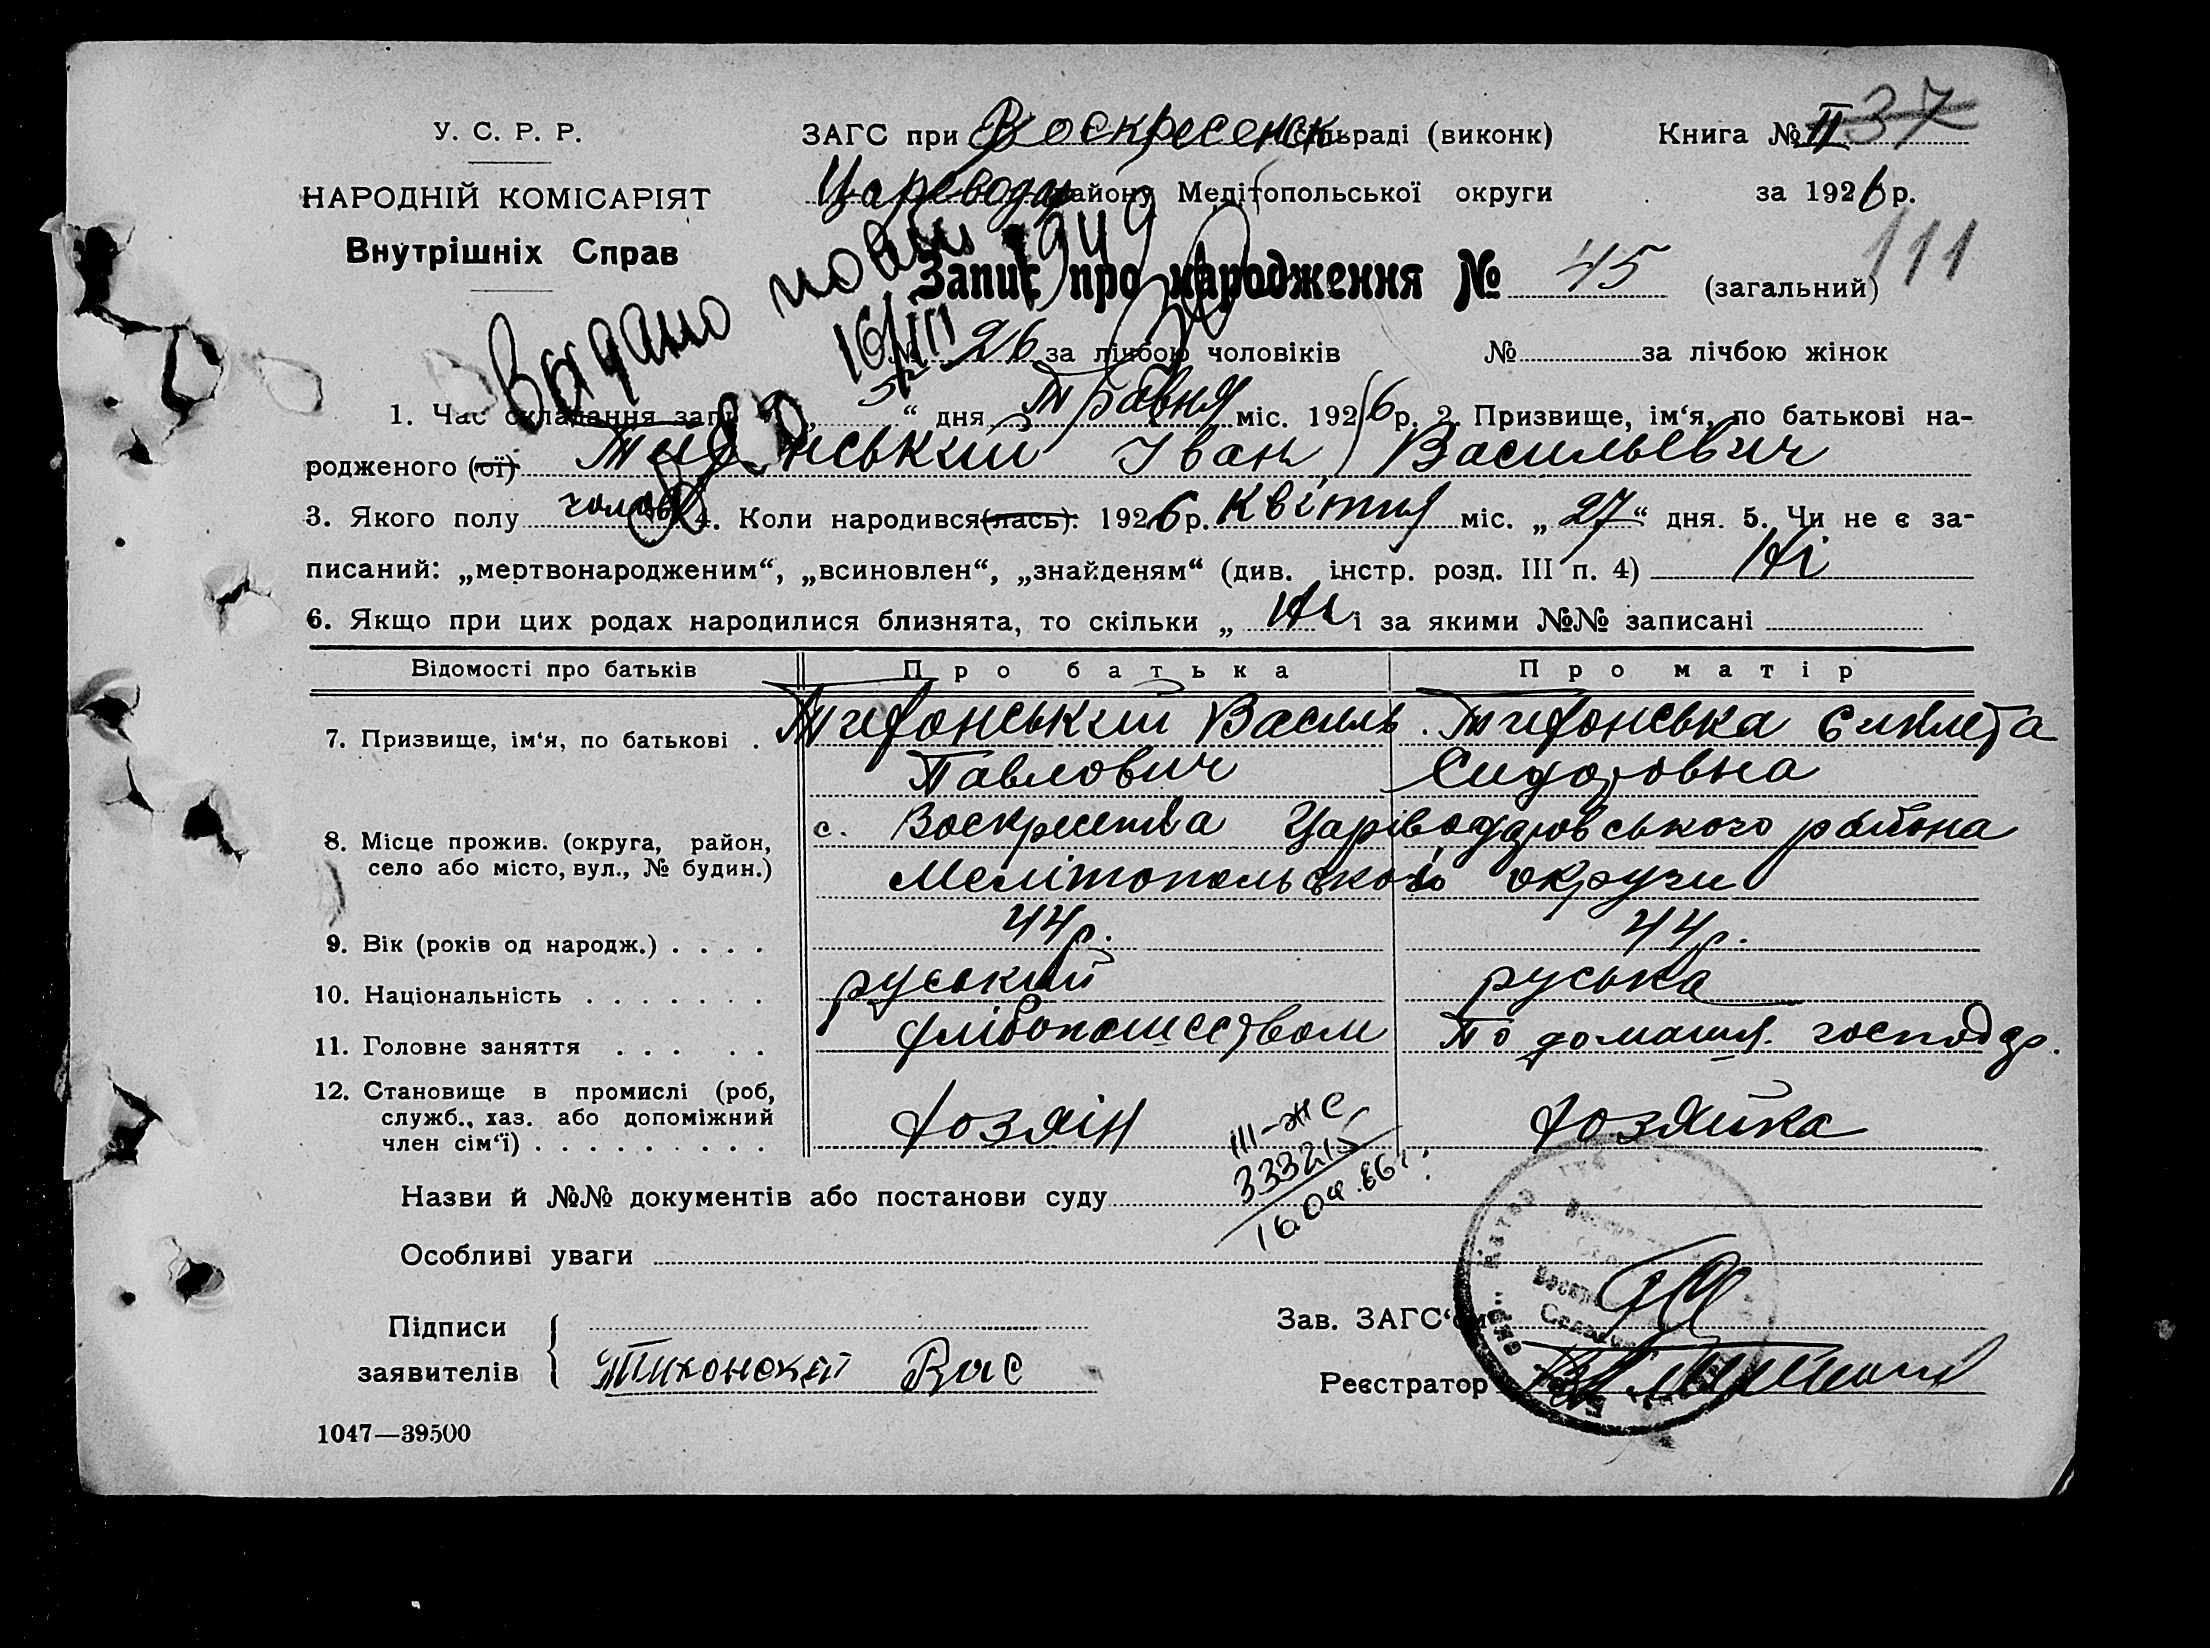 У. С. Р. Р.
НАРОДНІЙ КОМІСАРІЯТ
Внутрішніх Справ
ЗАГС при Воскресенск сільраді (виконк)
Царевод району Мелітопольської округи
Книга № II 37
за 1926 р.
111
Запис про народження № 45 (загальний)
Видано новый 1949
16/III
№ 26 за лічбою чоловіків № за лічбою жінок
1. Час складання запису „5“ дня Травня міс. 1926 р. 2. Призвище, ім‘я, по батькові на-
родженого (ої) Тихонський Іван Васильевич
3. Якого полу чолов 4. Коли народився (лась). 1926 р. Квітня міс. „27“ дня. 5. Чи не є за-
писаний: „мертвонародженим“, „всиновлен“, „знайденям“ (див. інстр. розд. III п. 4) Ні
6. Якщо при цих родах народилися близнята, то скільки „ Ні і за якими №№ записані
Відомості про батьків Про батька Про матір
7. Призвище, ім‘я, по батькові . Тихонський Василь Тихонська
Павлович Сидоровна
8. Місце прожив. (округа, район, село або місто, вул., № будин.) с. Воскресенка Царіводаровського района
Мелітопольської округи
9. Вік (років од народж.) . . . . 44 р. 44 р.
10. Національність . . . . . . . руський руська
11. Головне заняття . . . . . хлібопашеством По домашн. господар.
12. Становище в промислі (роб, служб., хаз. або допоміжний член сім‘ї) . . . . . . . . . хозяін хозяйка
III-ЖС
333215
16.04.86г.
Назви й №№ документів або постанови суду
Особливі уваги
Підписи
заявителів
Тихонский Вас
Зав. ЗАГС‘ом
Реєстратор
1047—39500